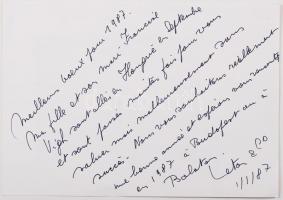 Meilleurs voeux pour 1987.
Ma fille et son mari Francine
Vigh sont allés en Hongrie en Septembre
et sont passés maintes fois pour vous
saluer mais malheureusement sans
succès. Nous vous souhaitons réellement
une bonne année et espérons vous rencontrer
en 1987 à Budapest ou à
Balaton
1/1/87